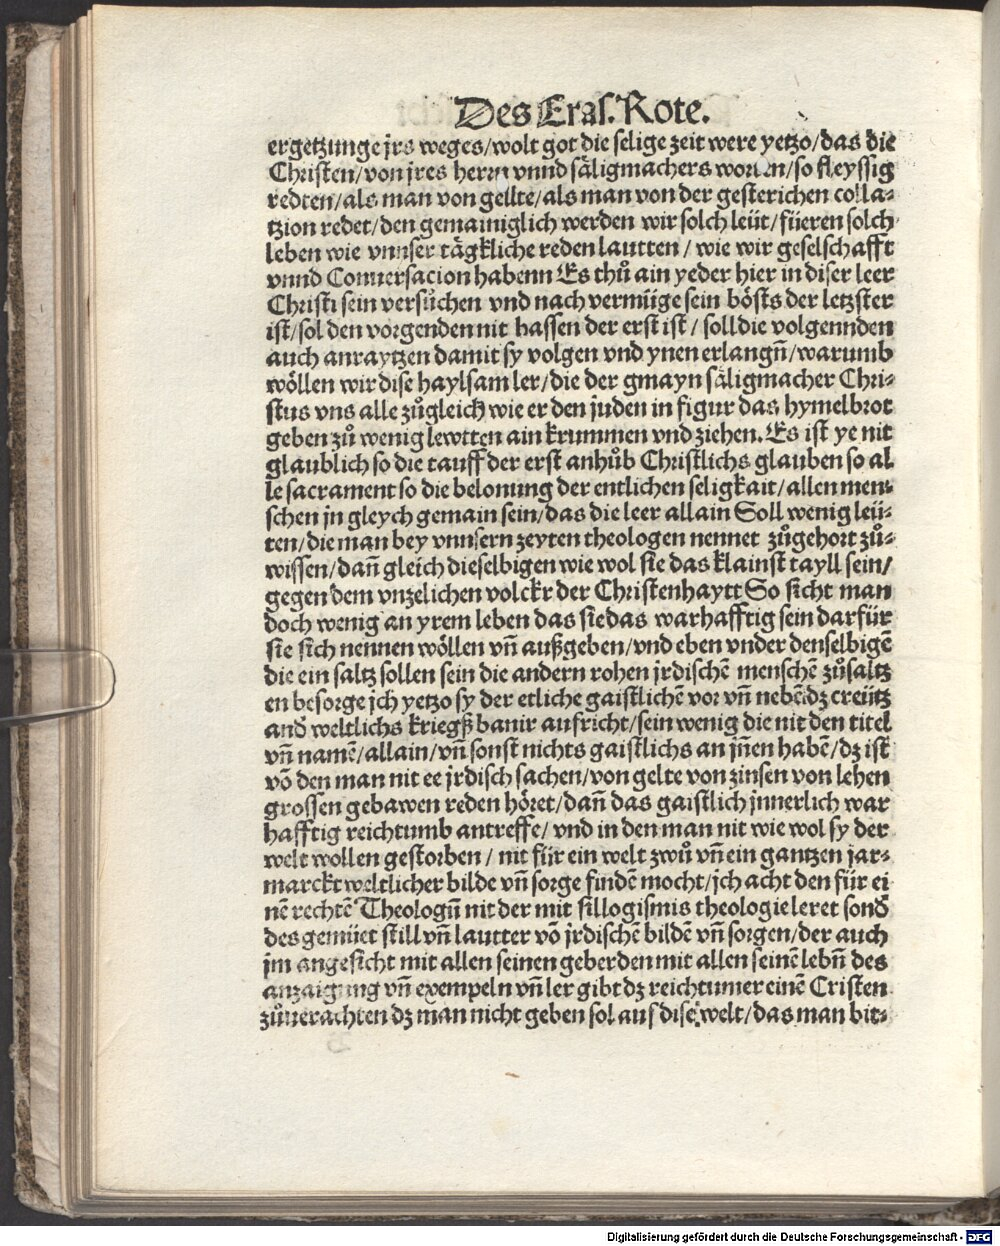 Des Eras. Rote.
ergetzunge jrs weges/wolt got die selige zeit were yetzo/das die
Christen/von jres herrn vnnd säligmachers worten/so fleyssig
redten/als man von gellte/als man von der gesterichen colla⸗
tzion redet/den gemainiglich werden wir solch leüt/füeren solch
leben wie vnnser tägkliche reden lautten/wie wir geselschafft
vnnd Conuersacion habenn Es thuͦ ain yeder hier in diser leer
Christi sein versuͦchen vnd nach vermüge sein bösts der letzster
ist/sol den vorgenden nit hassen der erst ist/soll die volgennden
auch anraytzen damit sy volgen vnd ynen erlangn̄/warumb
wöllen wir dise haylsam ler/die der gmayn säligmacher Chri⸗
stus vns alle zuͦgleich wie er den juden in figur das hymelbrot
geben zuͦ wenig lewtten ain krummen vnd ziehen. Es ist ye nit
glaublich so die tauff der erst anhuͦb Christlichs glauben so al
le sacrament so die belonung der entlichen seligkait/allen men⸗
schen jn gleych gemain sein/das die leer allain Soll wenig leü⸗
ten/die man bey vnnsern zeyten theologen nennet zuͦgehort zuͦ⸗
wissen/dan̄ gleich dieselbigen wie wol sie das klainst tayll sein/
gegen dem vnzelichen volckr der Christenhaytt So sicht man
doch wenig an yrem leben das sie das warhafftig sein darfür
sie sich nennen wöllen vn̄ außgeben/vnd eben vnder denselbigē
die ein saltz sollen sein die andern rohen jrdischē menschē zuͦsaltz
en besorge jch yetzo sy der etliche gaistlichē vor vn̄ nebē dz creütz
and̄ weltlichs kriegß banir aufricht/sein wenig die nit den titel
vn̄ namē/allain/vn̄ sonst nichts gaistlichs an jn̄en habē/dz ist
vō den man nit ee jrdisch sachen/von gelte von zinsen von lehen
grossen gebawen reden höret/dan̄ das gaistlich jnnerlich war
hafftig reichtumb antreffe/vnd in den man nit wie wol sy der
welt wollen gestorben/nit für ein welt zwuͦ vn̄ ein gantzen jar⸗
marckt weltlicher bilde vn̄ sorge findē mocht/jch acht den für ei
nē rechtē Theologn̄ nit der mit sillogismis theologie leret sond̄
des gemüet still vn̄ lautter vō jrdischē bildē vn̄ sorgen/der auch
jm angesicht mit allen seinen geberden mit allen seinē lebn̄ des
anzaigung vn̄ exempeln vn̄ ler gibt dz reichtumer einē Cristen
zuͦuerachten dz man nicht geben sol auf disē welt/das man bit⸗
Digitalisierung gefördert durch die Deutsche Forschungsgemeinschaft - DFG